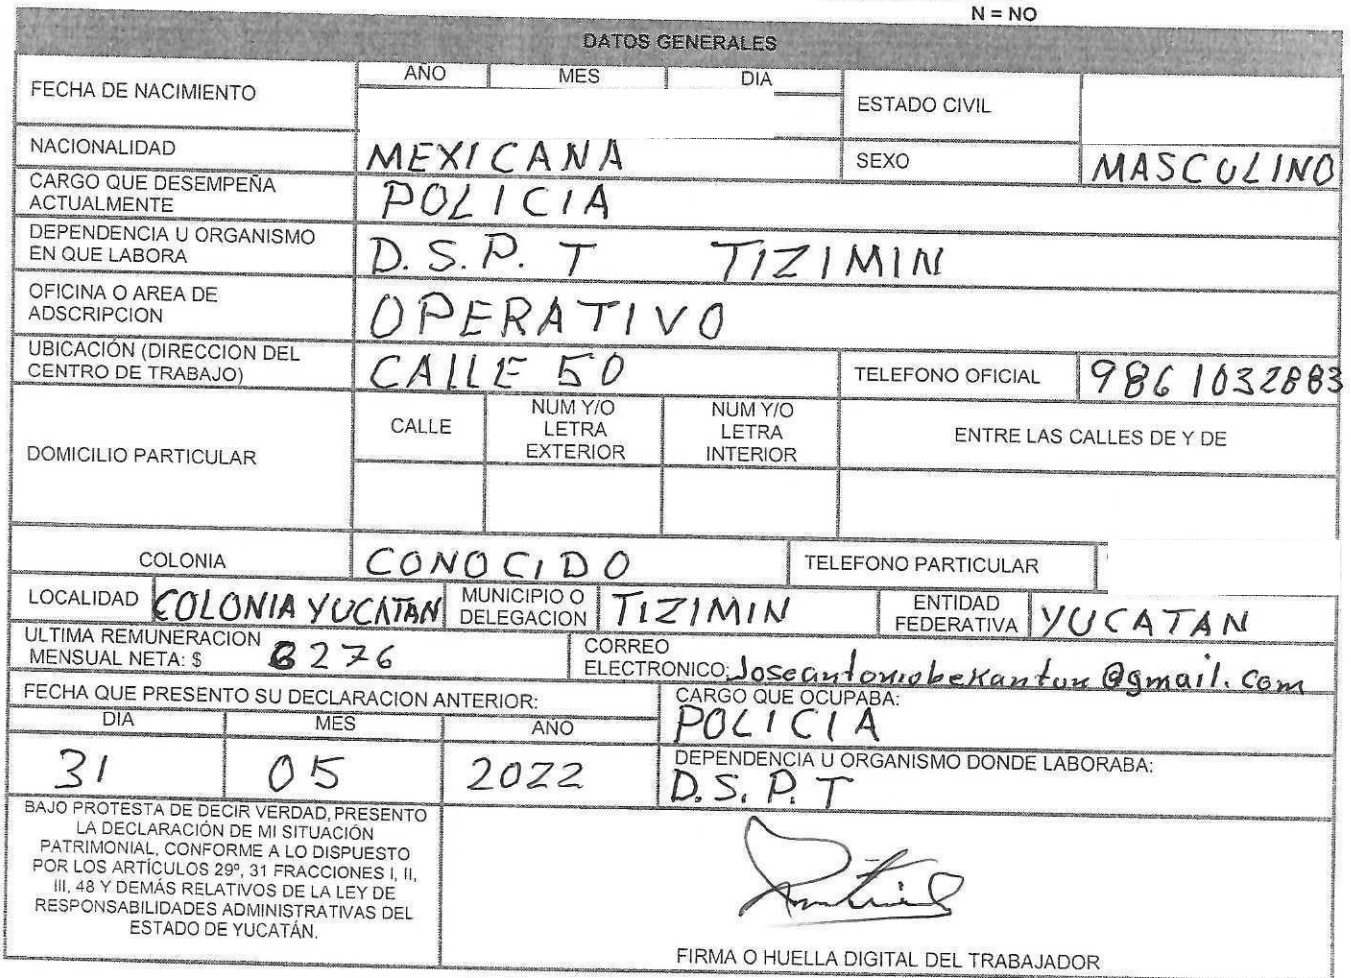 N = NO
DATOS GENERALES
FECHA DE NACIMIENTO
AÑO MES DIA
ESTADO CIVIL
NACIONALIDAD MEXICANA SEXO MASCULINO
CARGO QUE DESEMPEÑA
ACTUALMENTE
POLICIA
DEPENDENCIA U ORGANISMO
EN QUE LABORA
D. S. P. T TIZIMIN
OFICINA O AREA DE
ADSCRIPCION
OPERATIVO
UBICACIÓN (DIRECCION DEL
CENTRO DE TRABAJO)
CALLE 50
TELEFONO OFICIAL 986 1032883
DOMICILIO PARTICULAR
CALLE
NUM Y/O
LETRA
EXTERIOR
NUM Y/O
LETRA
INTERIOR
ENTRE LAS CALLES DE Y DE
COLONIA CONOCIDO TELEFONO PARTICULAR
LOCALIDAD COLONIA YUCATAN
MUNICIPIO O
DELEGACION
TIZIMIN
ENTIDAD
FEDERATIVA
YUCATAN
ULTIMA REMUNERACION
MENSUAL NETA: $ 8276
CORREO
ELECTRONICO:
FECHA QUE PRESENTO SU DECLARACION ANTERIOR:
DIA MES AÑO
31 05 2022
CARGO QUE OCUPABA:
POLICIA
DEPENDENCIA U ORGANISMO DONDE LABORABA:
D. S. P. T
BAJO PROTESTA DE DECIR VERDAD, PRESENTO
LA DECLARACIÓN DE MI SITUACIÓN
PATRIMONIAL, CONFORME A LO DISPUESTO
POR LOS ARTÍCULOS 29º, 31 FRACCIONES I, II,
III, 48 Y DEMÁS RELATIVOS DE LA LEY DE
RESPONSABILIDADES ADMINISTRATIVAS DEL
ESTADO DE YUCATÁN.
FIRMA O HUELLA DIGITAL DEL TRABAJADOR